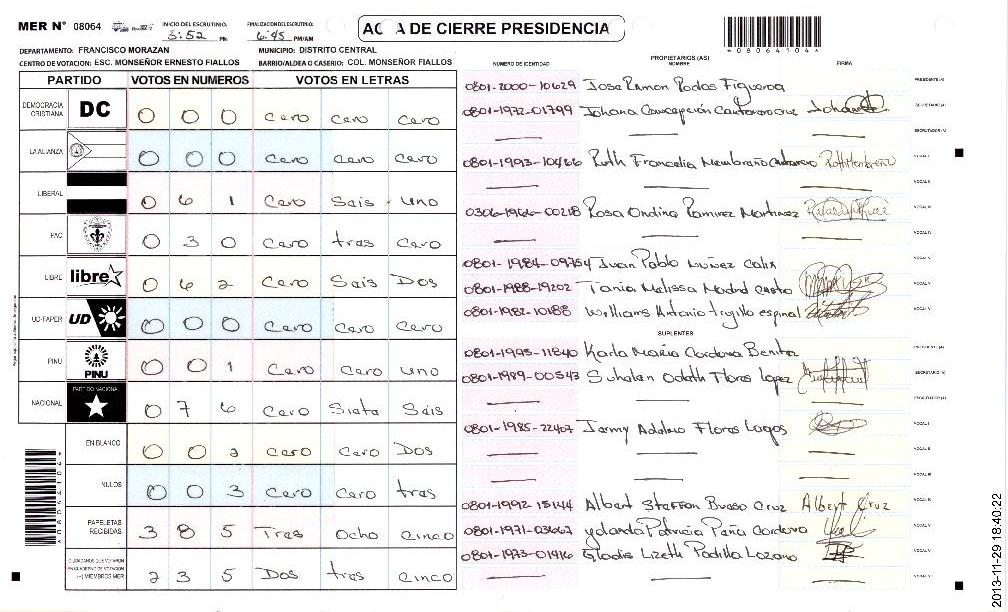 MER N° 08064 INICIO DEL ESCRUTINIO: 5:52 PM FINALIZACION DEL ESCRUTINIO: 6:45 PM/AM
ACTA DE CIERRE PRESIDENCIA
DEPARTAMENTO: FRANCISCO MORAZAN MUNICIPIO: DISTRITO CENTRAL
CENTRO DE VOTACION: ESC. MONSEÑOR ERNESTO FIALLOS BARRIO/ALDEA O CASERIO: COL. MONSEÑOR FIALLOS
PARTIDO VOTOS EN NUMEROS VOTOS EN LETRAS
DEMOCRACIA CRISTIANA DC 0 0 0 Cero Cero Cero
LA ALIANZA 0 0 0 Cero Cero Cero
LIBERAL 0 6 1 Cero Seis Uno
PAC 0 3 0 Cero tres Cero
LIBRE libre 0 6 2 Cero Seis Dos
UD-FAPER UD 0 0 0 Cero Cero Cero
PINU PINU 0 0 1 Cero Cero uno
NACIONAL PARTIDO NACIONAL 0 7 6 Cero Siete Seis
EN BLANCO 0 0 2 Cero Cero Dos
NULOS 0 0 3 Cero Cero tres
PAPELETAS RECIBIDAS 3 8 5 Tres Ocho cinco
CIUDADANOS QUE VOTARON EN CUADERNO DE VOTACION (+) MIEMBROS MER 2 3 5 Dos tres cinco
08064104
NUMERO DE IDENTIDAD PROPIETARIOS (AS) NOMBRE FIRMA
0801-2000-10629 Jose Ramon Rodas Figueroa PRESIDENTE (A)
0801-1972-01799 Johana Concepción SECRETARIO (A)
ESCRUTADOR (A)
0801-1993-10466 Ruth Francelia Membraño VOCAL I
VOCAL II
0306-1966-00218 Rosa Ondina Ramirez Martinez VOCAL III
VOCAL IV
0801-1984-09754 Juan Pablo Nuñez Calix
0801-1988-19202 Tania Melissa Madrid Castro VOCAL V
0801-1982-10188 Williams Antonio trujillo espinal VOCAL VI
SUPLENTES
0801-1995-11840 Karla Maria Cordova Benitez PRESIDENTE (A)
0801-1989-00543 Suhalen Odeth Flores lopez SECRETARIO (A)
ESCRUTADOR (A)
0801-1985-22407 Jenny Adelaw Flores Lagos VOCAL I
VOCAL II
VOCAL III
0801-1992-15144 Albert Steffan Busso Cruz Albert Cruz VOCAL IV
0801-1971-03667 yolanda Patricia Peña Cordova VOCAL V
0801-1973-01416 Gladis Lizeth Padilla Lozano VOCAL VI
VOCAL VII
2013-11-29 18:40:22